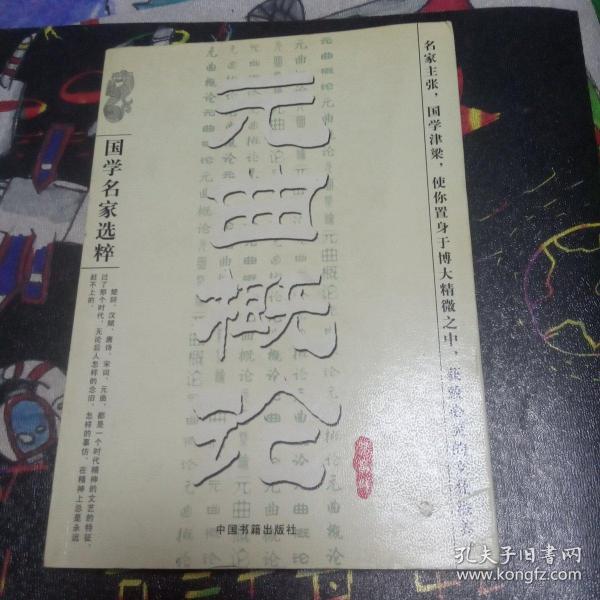 名家主张，国学津梁，使你置身于博大精微之中，获致必灵的文化极美
元曲概论
国学名家选粹
楚辞、汉赋、唐诗、宋词、元曲，都是一个时代精神的文艺的特征，
过了那个时代，无论后人怎样的念旧、怎样的摹仿，在精神上总是永远
赶不上的。
中国书籍出版社
孔夫子旧书网
www.kongfz.com